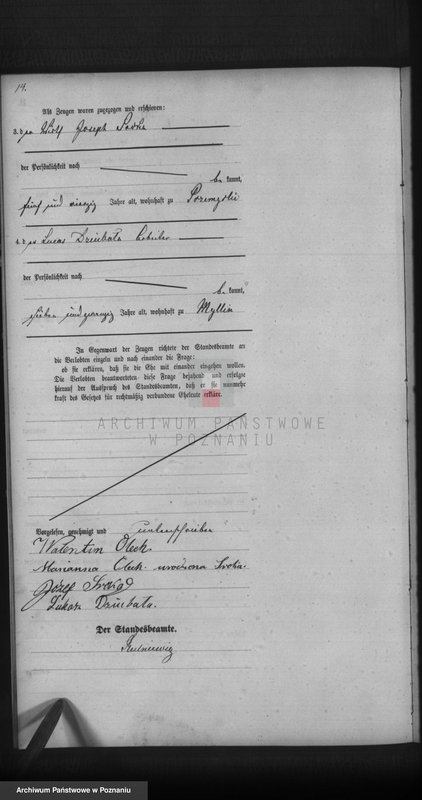 14.
Als Zeugen waren zugezogen und erschienen:
3. der Wirth Joseph Sroka
der Persönlichkeit nach
be kannt,
fünf und vierzig Jahre alt, wohnhaft zu
4. der Lucas Dziubała
der Persönlichkeit nach
be kannt,
sieben und zwanzig Jahre alt, wohnhaft zu Myllin
In Gegenwart der Zeugen richtete der Standesbeamte an
die Verlobten einzeln und nach einander die Frage:
ob sie erklären, daß sie die Ehe mit einander eingehen wollen.
Die Verlobten beantworteten diese Frage bejahend und erfolgte
hierauf der Ausspruch des Standesbeamten, daß er sie nunmehr
kraft des Gesetzes für rechtmäßig verbundene Eheleute erkläre.
ARCHIWUM PAŃSTWOWE
W POZNANIU
Vorgelesen, genehmigt und unterschrieben
Walentin Olek
Marianna Olek urodzona Sroka.
Józef Sroka
Łukasz Dziubata.
Der Standesbeamte.
Archiwum Państwowe w Poznaniu